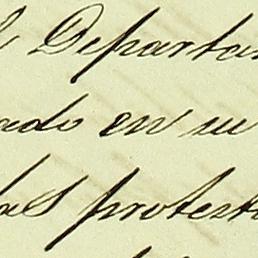 l Departa
ado en su
las protest